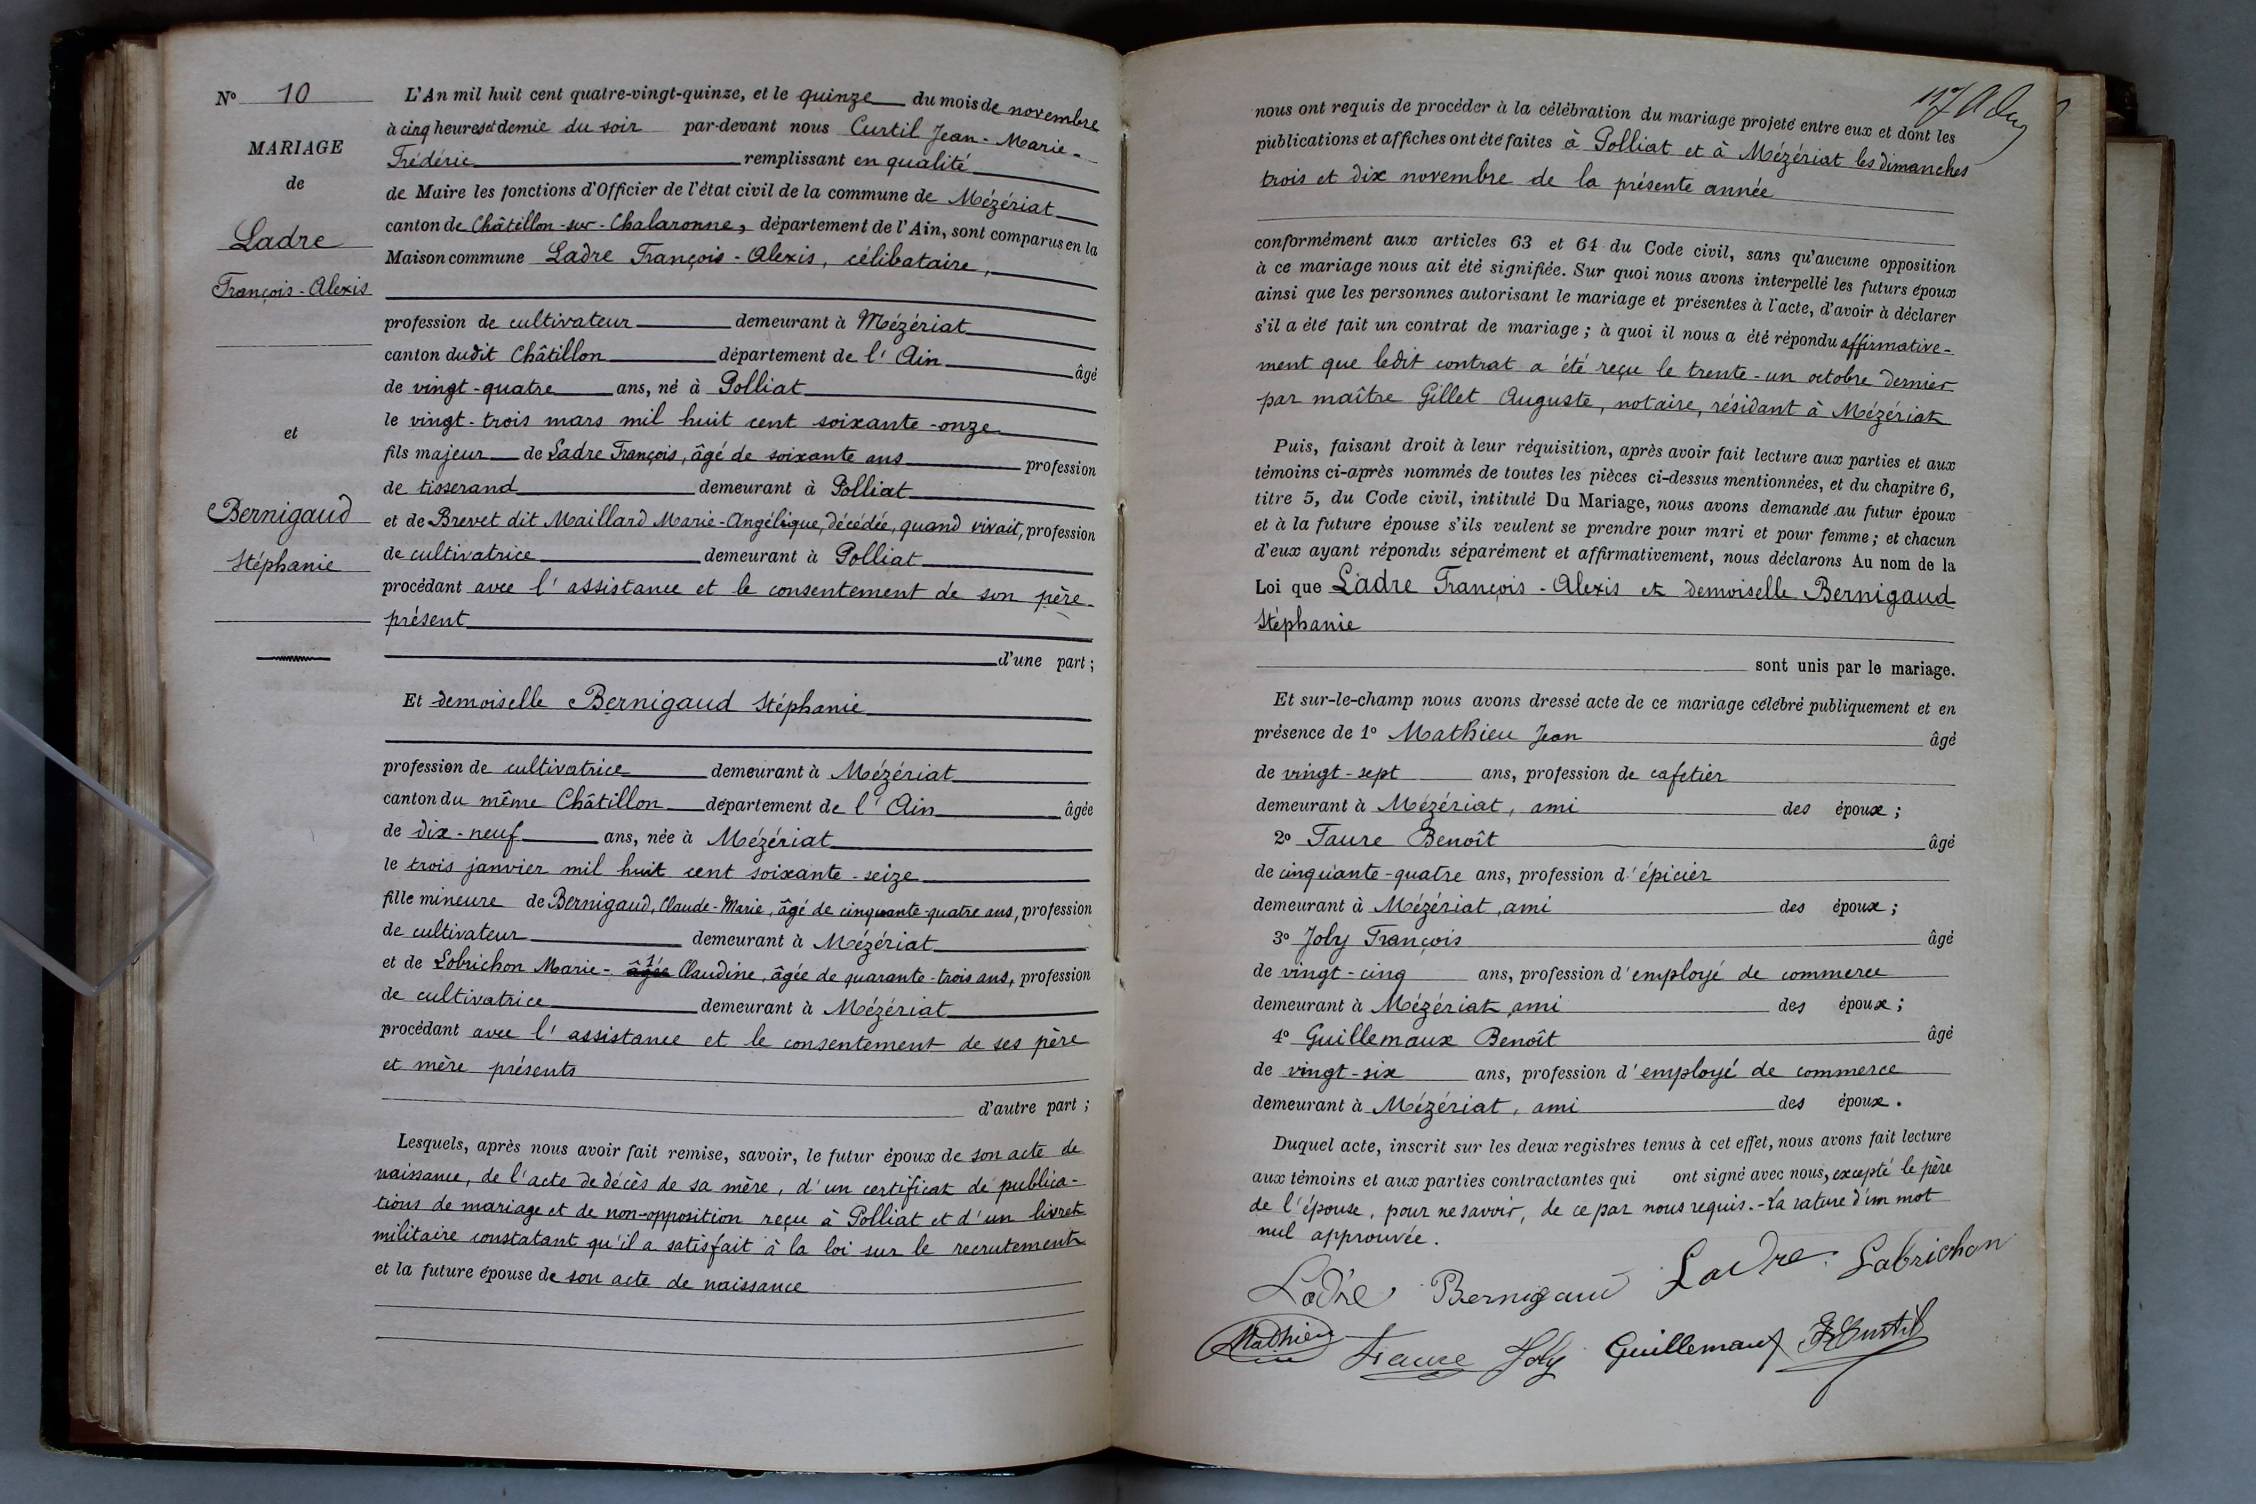 N° 10
MARIAGE
de
Ladre
François-Alexis
et
Bernigaud
Stéphanie
L'An mil huit cent quatre-vingt-quinze, et le quinze du mois de novembre
à cinq heures et demie du soir par-devant nous Curtil Jean-Marie-
Frédéric remplissant en qualité
de Maire les fonctions d'Officier de l'état civil de la commune de Mézériat
canton de Châtillon-sur-Chalaronne, département de l'Ain, sont comparus en la
Maison commune Ladre François-Alexis, célibataire,
profession de cultivateur demeurant à Mézériat
canton dudit Châtillon département de l'Ain âgé
de vingt-quatre ans, né à Polliat
le vingt-trois mars mil huit cent soixante-onze
fils majeur de Ladre François, âgé de soixante ans profession
de tisserand demeurant à Polliat
et de Brevet dit Maillard Marie-Angélique, décédée, quand vivait, profession
de cultivatrice demeurant à Polliat
procédant avec l'assistance et le consentement de son père
présent
d'une part ;
Et demoiselle Bernigaud Stéphanie
profession de cultivatrice demeurant à Mézériat
canton du même Châtillon département de l'Ain âgée
de dix-neuf ans, née à Mézériat
le trois janvier mil huit cent soixante-seize
fille mineure de Bernigaud, Claude-Marie, âgé de cinquante-quatre ans, profession
de cultivateur demeurant à Mézériat
et de Lobrichon Marie- âgée Claudine, âgée de quarante-trois ans, profession
de cultivatrice demeurant à Mézériat
procédant avec l'assistance et le consentement de ses père
et mère présents
d'autre part ;
Lesquels, après nous avoir fait remise, savoir, le futur époux de son acte de
naissance, de l'acte de décès de sa mère, d'un certificat de publica-
tions de mariage et de non-opposition reçu à Polliat et d'un livret
militaire constatant qu'il a satisfait à la loi sur le recrutement
et la future épouse de son acte de naissance
nous ont requis de procéder à la célébration du mariage projeté entre eux et dont les
publications et affiches ont été faites à Polliat et à Mézériat les dimanches
trois et dix novembre de la présente année
conformément aux articles 63 et 64 du Code civil, sans qu'aucune opposition
à ce mariage nous ait été signifiée. Sur quoi nous avons interpellé les futurs époux
ainsi que les personnes autorisant le mariage et présentes à l'acte, d'avoir à déclarer
s'il a été fait un contrat de mariage ; à quoi il nous a été répondu affirmative-
ment que ledit contrat a été reçu le trente-un octobre dernier
par maître Gillet Auguste, notaire, résidant à Mézériat
Puis, faisant droit à leur réquisition, après avoir fait lecture aux parties et aux
témoins ci-après nommés de toutes les pièces ci-dessus mentionnées, et du chapitre 6,
titre 5, du Code civil, intitulé Du Mariage, nous avons demandé au futur époux
et à la future épouse s'ils veulent se prendre pour mari et pour femme ; et chacun
d'eux ayant répondu séparément et affirmativement, nous déclarons Au nom de la
Loi que Ladre François-Alexis et demoiselle Bernigaud
Stéphanie
sont unis par le mariage.
Et sur-le-champ nous avons dressé acte de ce mariage célébré publiquement et en
présence de 1° Mathieu Jean âgé
de vingt-sept ans, profession de cafetier
demeurant à Mézériat, ami des époux ;
2° Faure Benoît âgé
de cinquante-quatre ans, profession d'épicier
demeurant à Mézériat, ami des époux ;
3° Joly François âgé
de vingt-cinq ans, profession d'employé de commerce
demeurant à Mézériat, ami des époux ;
4° Guillemaux Benoît âgé
de vingt-six ans, profession d'employé de commerce
demeurant à Mézériat, ami des époux.
Duquel acte, inscrit sur les deux registres tenus à cet effet, nous avons fait lecture
aux témoins et aux parties contractantes qui ont signé avec nous, excepté le père
de l'épouse, pour ne savoir, de ce par nous requis. - La rature d'un mot
nul approuvée.
Ladre Bernigaud Ladre Labrichon
Mathieu Faure Joly Guillemaux Curtil